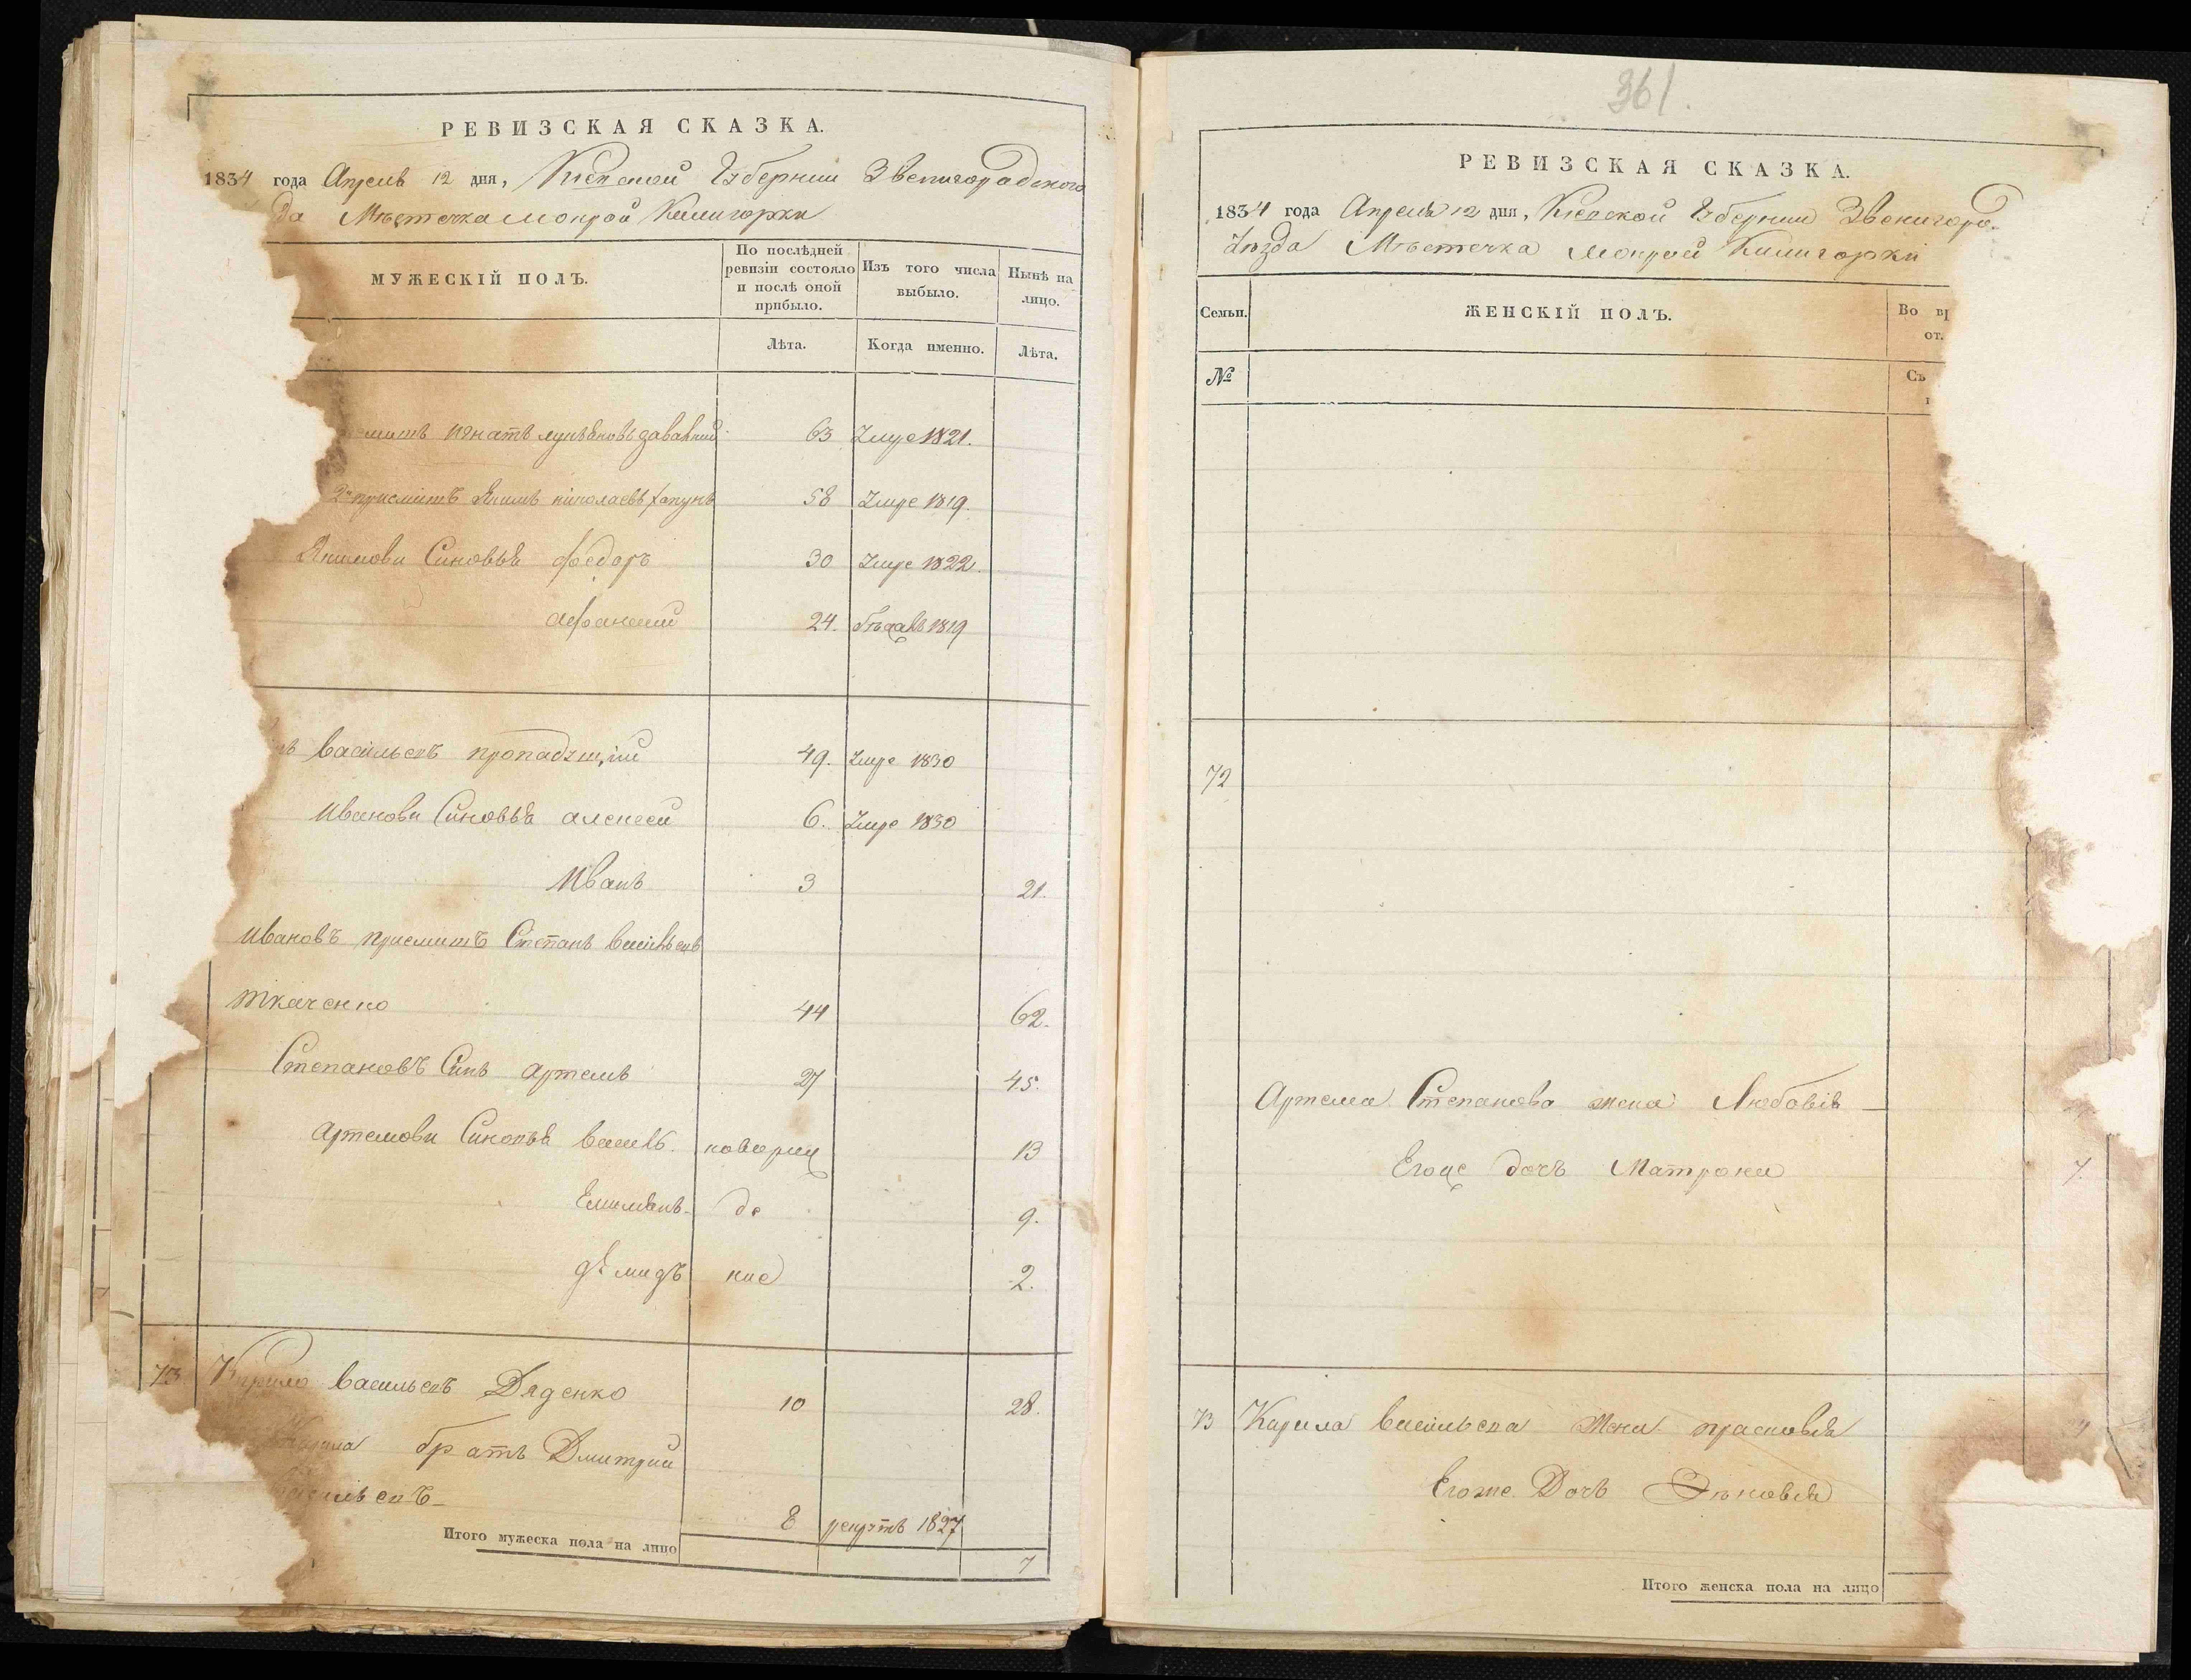 РЕВИЗСКАЯ СКАЗКА.
1834 года Апреля 12 дня, Киевской Губернии Звенигородского
да Местечка Мокрой Калигорки
МУЖЕСКІЙ ПОЛЪ.
По послѣдней ревизіи состояло и послѣ оной прибыло.
Изъ того числа выбыло.
Нынѣ на лицо.
Лѣта.
Когда именно.
Лѣта.
Игнатъ 63 Умре 1821.
приемишъ Якимъ николаевъ 58 Умре 1819.
Якимови Синовья Федоръ 30 Умре 1822.
Афанасий 24. 1819
васильевъ 49. Умре 1830
Иванови Синовья алексей 6. Умре 1830
Иванъ 3 21.
Ивановъ приемишъ Степанъ васильевъ
ткаченко 44 62.
Степановъ Синъ артемъ 27 45.
артемови Синовья василь. 13
Емилянъ- де 9.
демидъ 2.
73. Кирило васильевъ Дяденко 10 28.
братъ Дмитрий
8 рекрутъ 1827
Итого мужеска пола на лицо 7
361.
РЕВИЗСКАЯ СКАЗКА.
1834 года Апреля 12 дня, Киевской Губернии Звенигоро-
Уезда Местечка Мокрой Калигорки
Семьи.
ЖЕНСКІЙ ПОЛЪ.
Во
от.
№
Съ
72
Артема Степанова жена Любовъ
дочъ Матрона 7.
73 Кирила васильева жена прасковья
Егоже Дочь
Итого женска пола на лицо